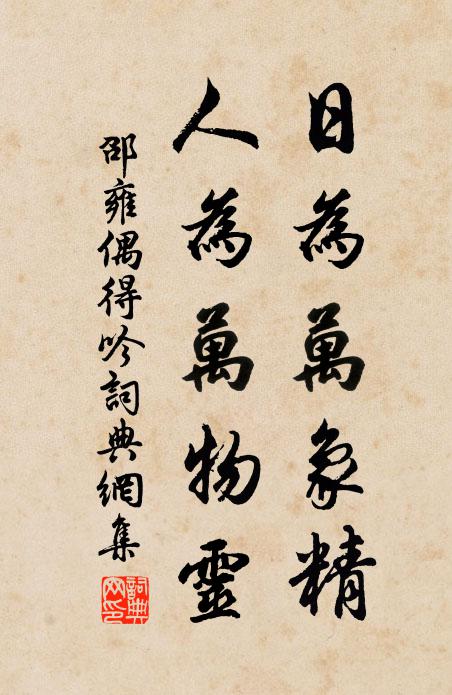 日為萬象精
人為萬物靈
邵雍偶得吟詞典網集
詞典